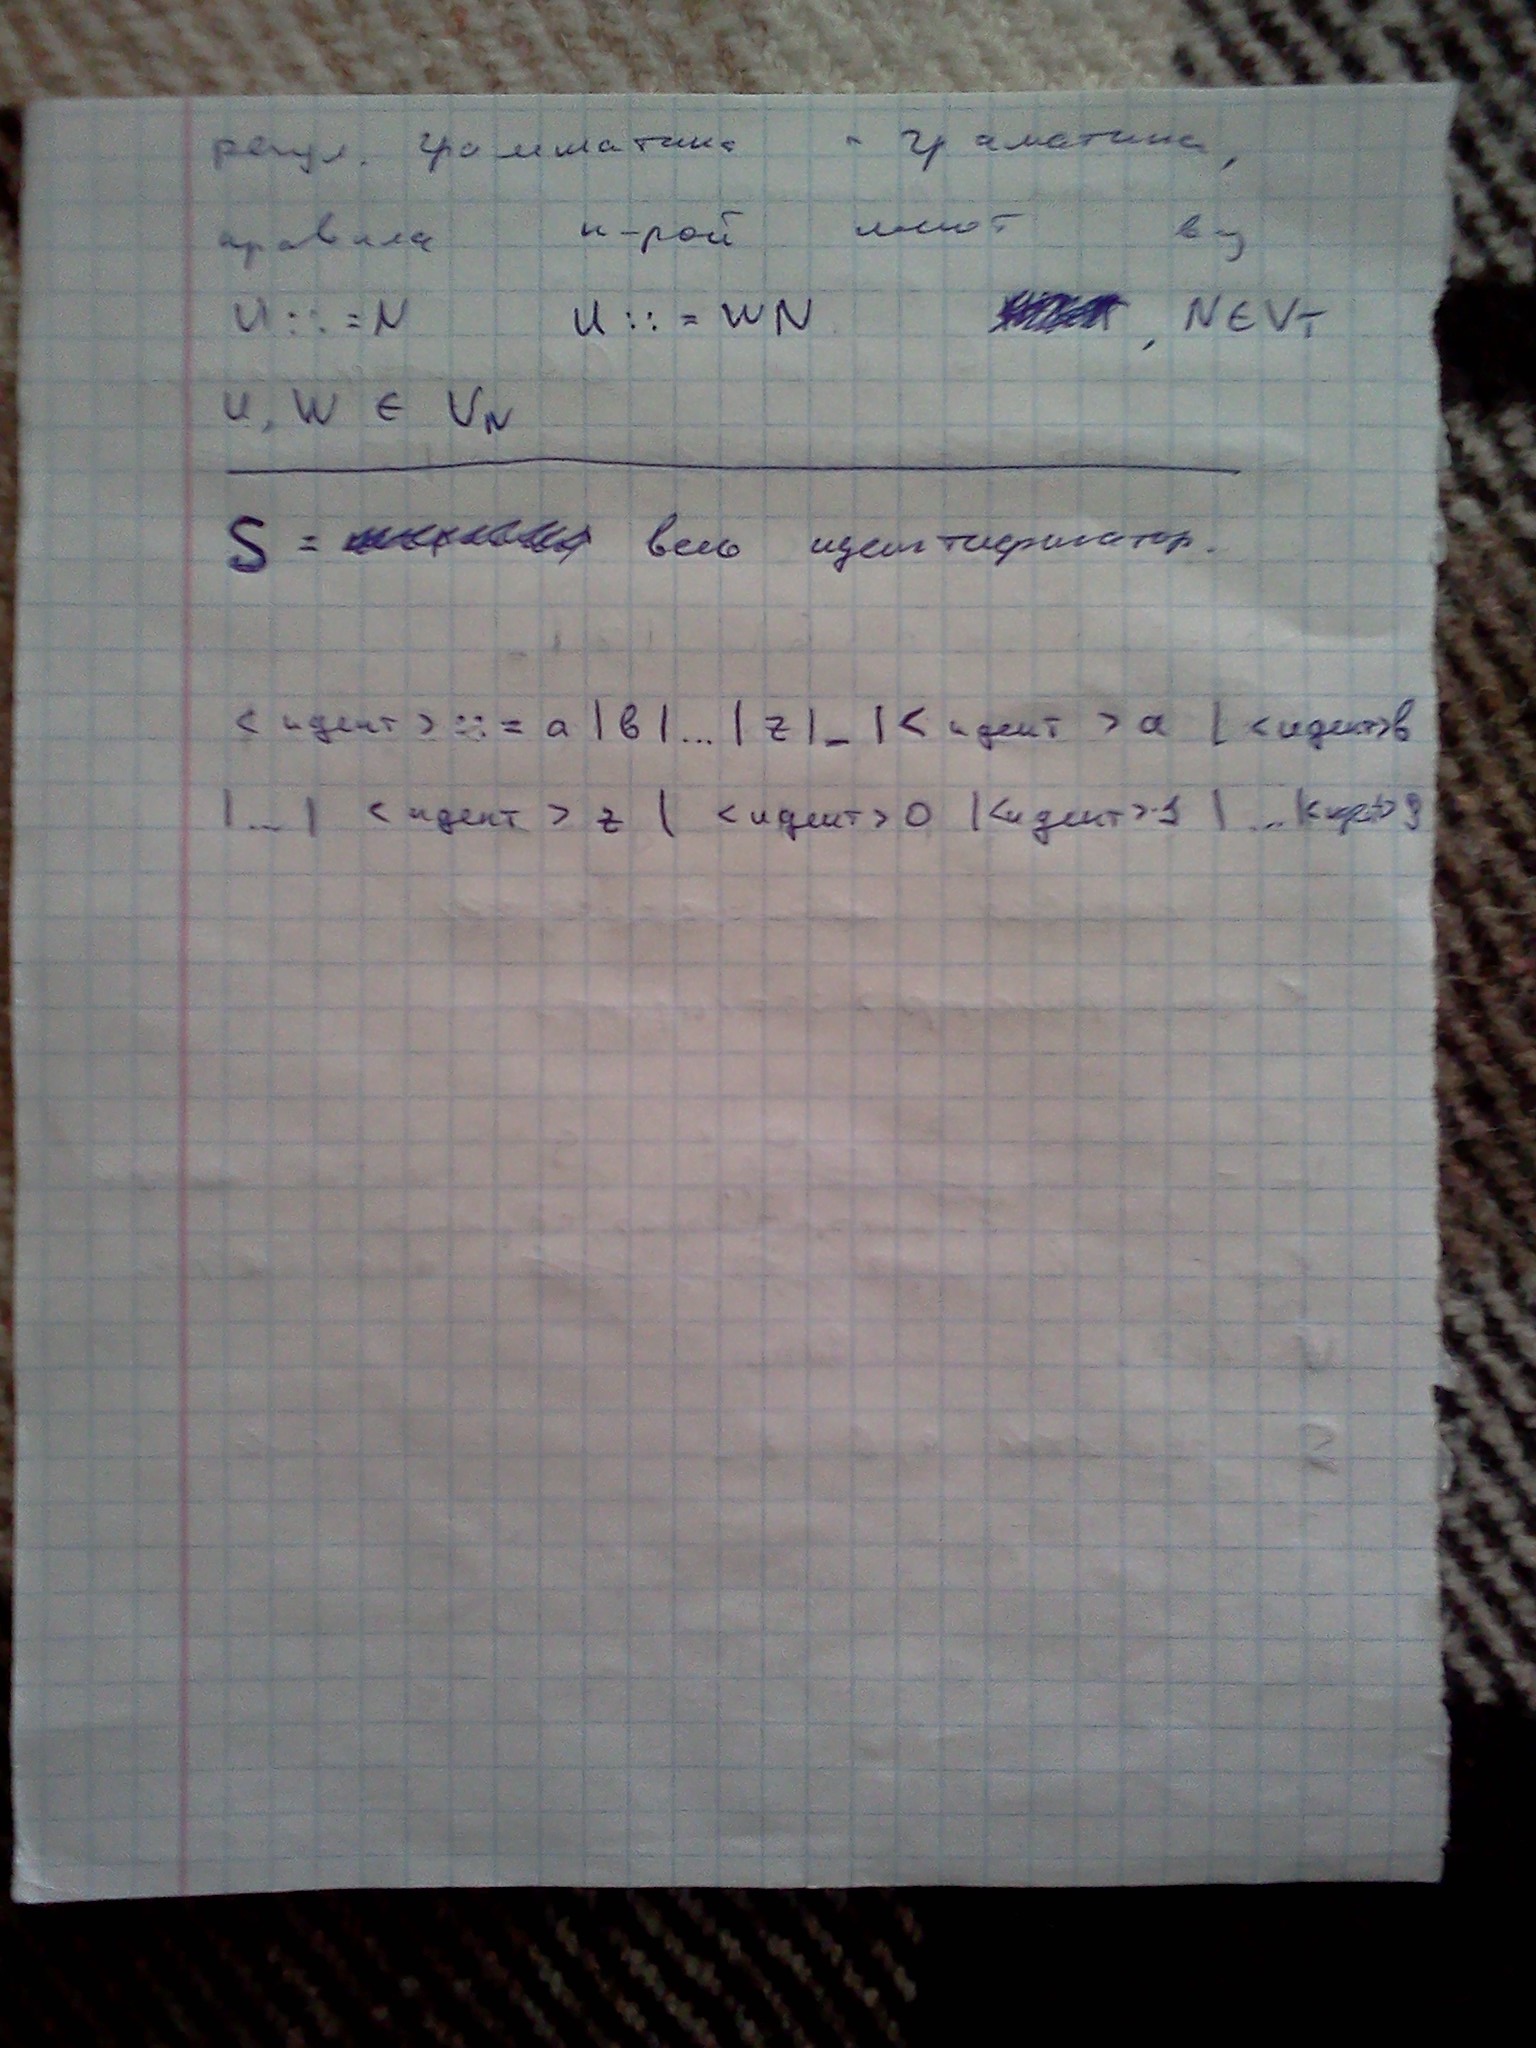 регул. грамматика - граматика,
правила к-рой имеют вид
U ::= N U ::= WN , N ∈ V_T
U, W ∈ V_N
S = весь идентификатор.
<идент> ::= a | b | ... | z | _ | <идент> a | <идент> b
| ... | <идент> z | <идент> 0 | <идент> 1 | ... | <идент> 9